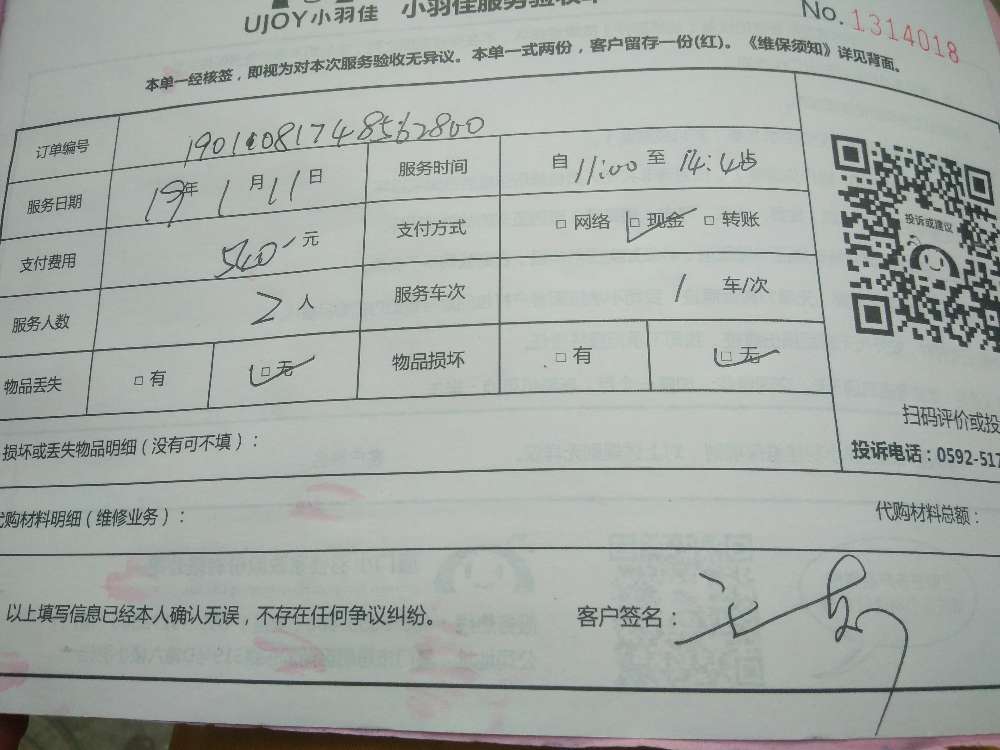 UJOY小羽佳 小羽佳服务验收单
No. 1314018
本单一经核签，即视为对本次服务验收无异议。本单一式两份，客户留存一份(红)。《维保须知》详见背面。
订单编号 190110817485562800
服务日期 19年 1月 11日 服务时间 自 11:00 至 14:45
支付费用 540 元 支付方式 □ 网络 □ 现金 □ 转账
服务人数 2 人 服务车次 1 车/次
物品丢失 □ 有 □ 无 物品损坏 □ 有 □ 无
投诉或建议
扫码评价或投
投诉电话：0592-517
损坏或丢失物品明细（没有可不填）：
代购材料明细（维修业务）： 代购材料总额：
以上填写信息已经本人确认无误，不存在任何争议纠纷。 客户签名：